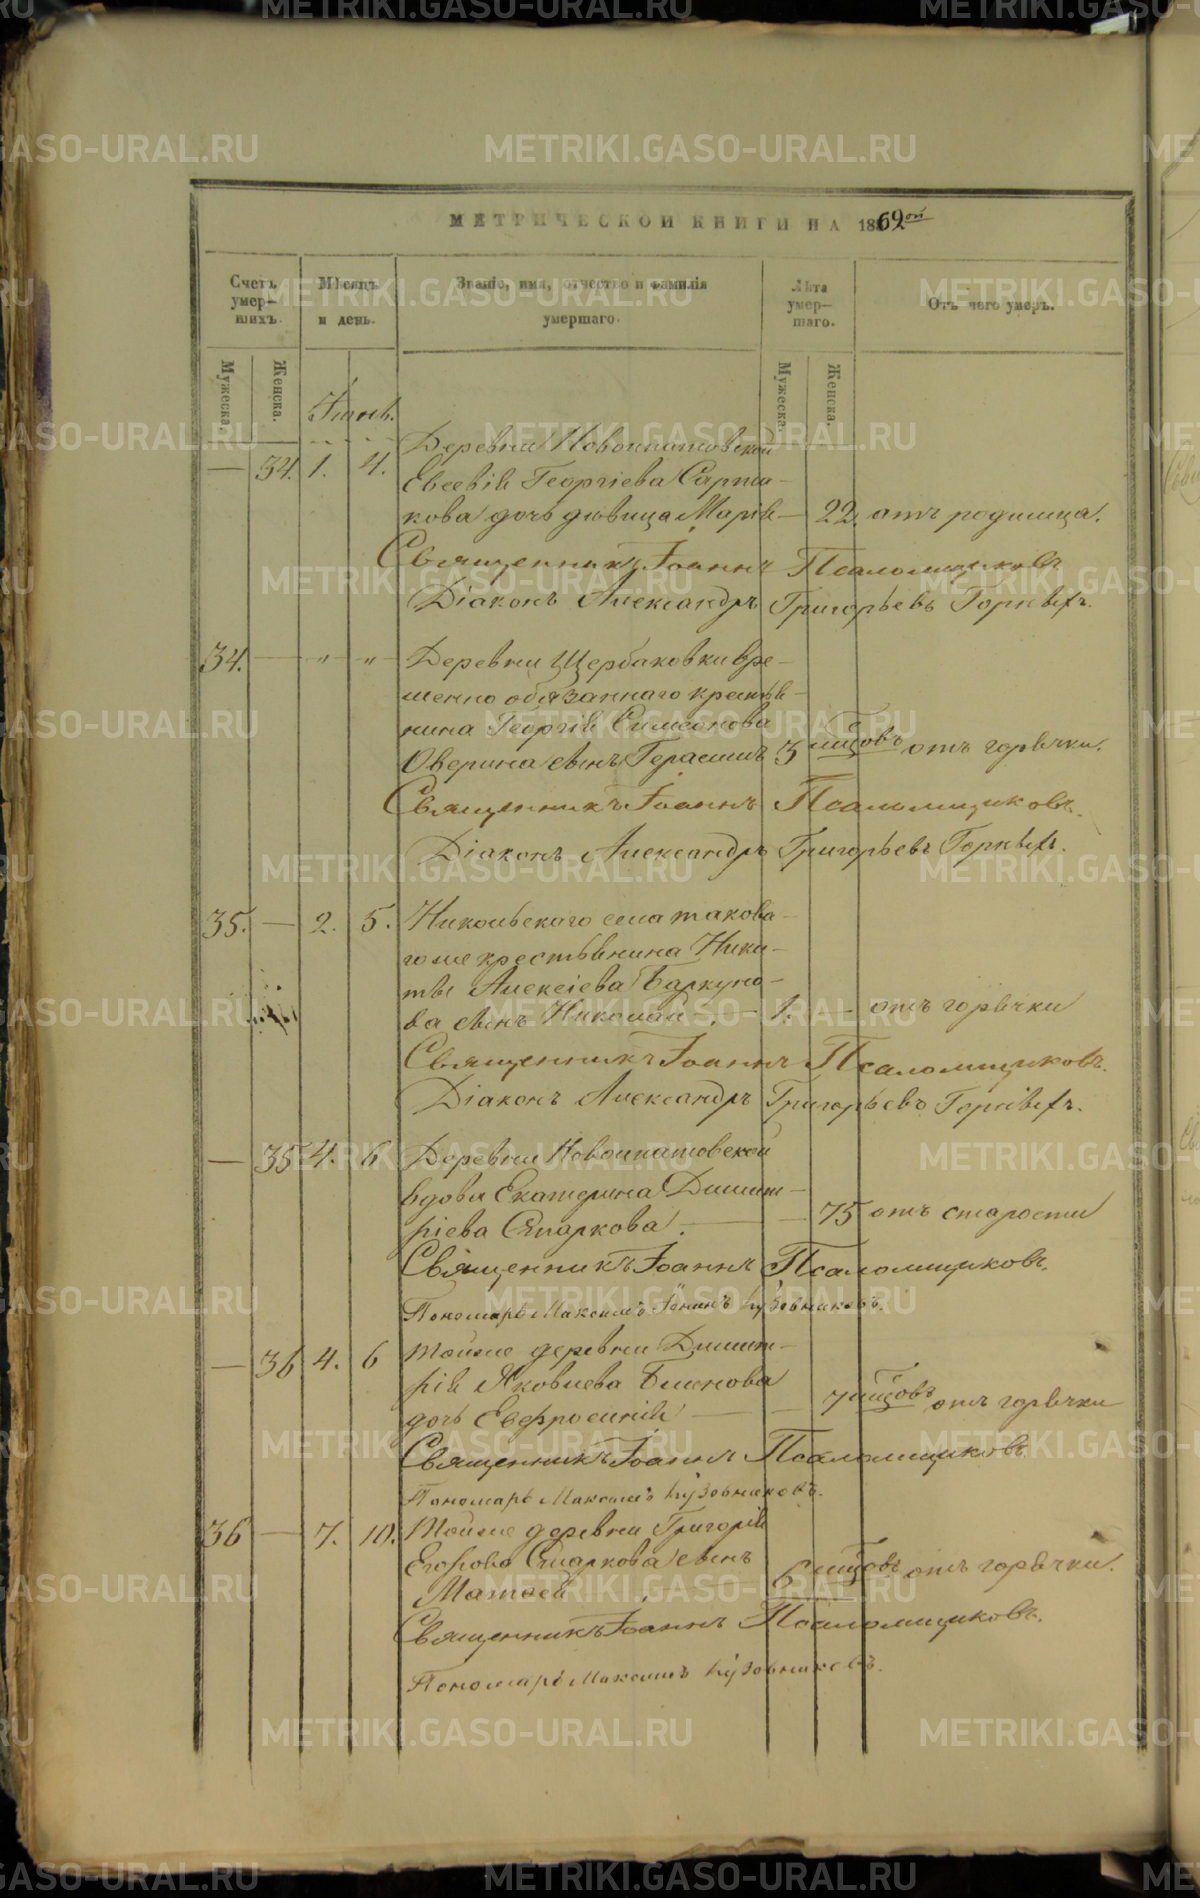 МЕТРИЧЕСКОЙ КНИГИ НА 1869ой
Счетъ умер-шихъ.
Мѣсяцъ и день.
Званіе, имя, отчество и фамилія умершаго.
Лѣта умер-шаго.
Отъ чего умеръ.
Мужеска.
Женска.
Мужеска.
Женска.
— 34. 1. 4. Деревни Новоипатовской
Евсевія Георгіева
кова дочь дѣвица Марія — 22. отъ родимца.
Священникъ Іоаннъ Псаломщиковъ
Діаконъ Александръ Григорьевъ
34. — " " Деревни Щербаковки вре-
менно обязаннаго крестья-
нина Георгія Симеонова
Оверина сынъ Герасимъ 3 мцовъ отъ горячки.
Священникъ Іоаннъ Псаломщиковъ.
Діаконъ Александръ Григорьевъ
35. — 2. 5. Никольскаго села такова-
гоже крестьянина Ники-
ты Алексіева Баркуно-
ва сынъ Николай — 1. — отъ горячки
Священникъ Іоаннъ Псаломщиковъ.
Діаконъ Александръ Григорьевъ
— 35 4. 6 Деревни Новоипатовской
вдова Екатерина Димит-
ріева Старкова. — 75 отъ старости
Священникъ Іоаннъ Псаломщиковъ.
Пономарь Максимъ Кузовниковъ.
— 36 4. 6 Тойже деревни Димит-
рія Яковлева Блинова
дочь Евфросинія — 7 мцовъ отъ горячки
Священникъ Іоаннъ Псаломщиковъ.
Пономарь Максимъ Кузовниковъ.
36 — 7. 10. Тойже деревни Григорія
Егорова Старкова сынъ
Матвей — 6 мцовъ отъ горячки.
Священникъ Іоаннъ Псаломщиковъ.
Пономарь Максимъ Кузовниковъ.
METRIKI.GASO-URAL.RU